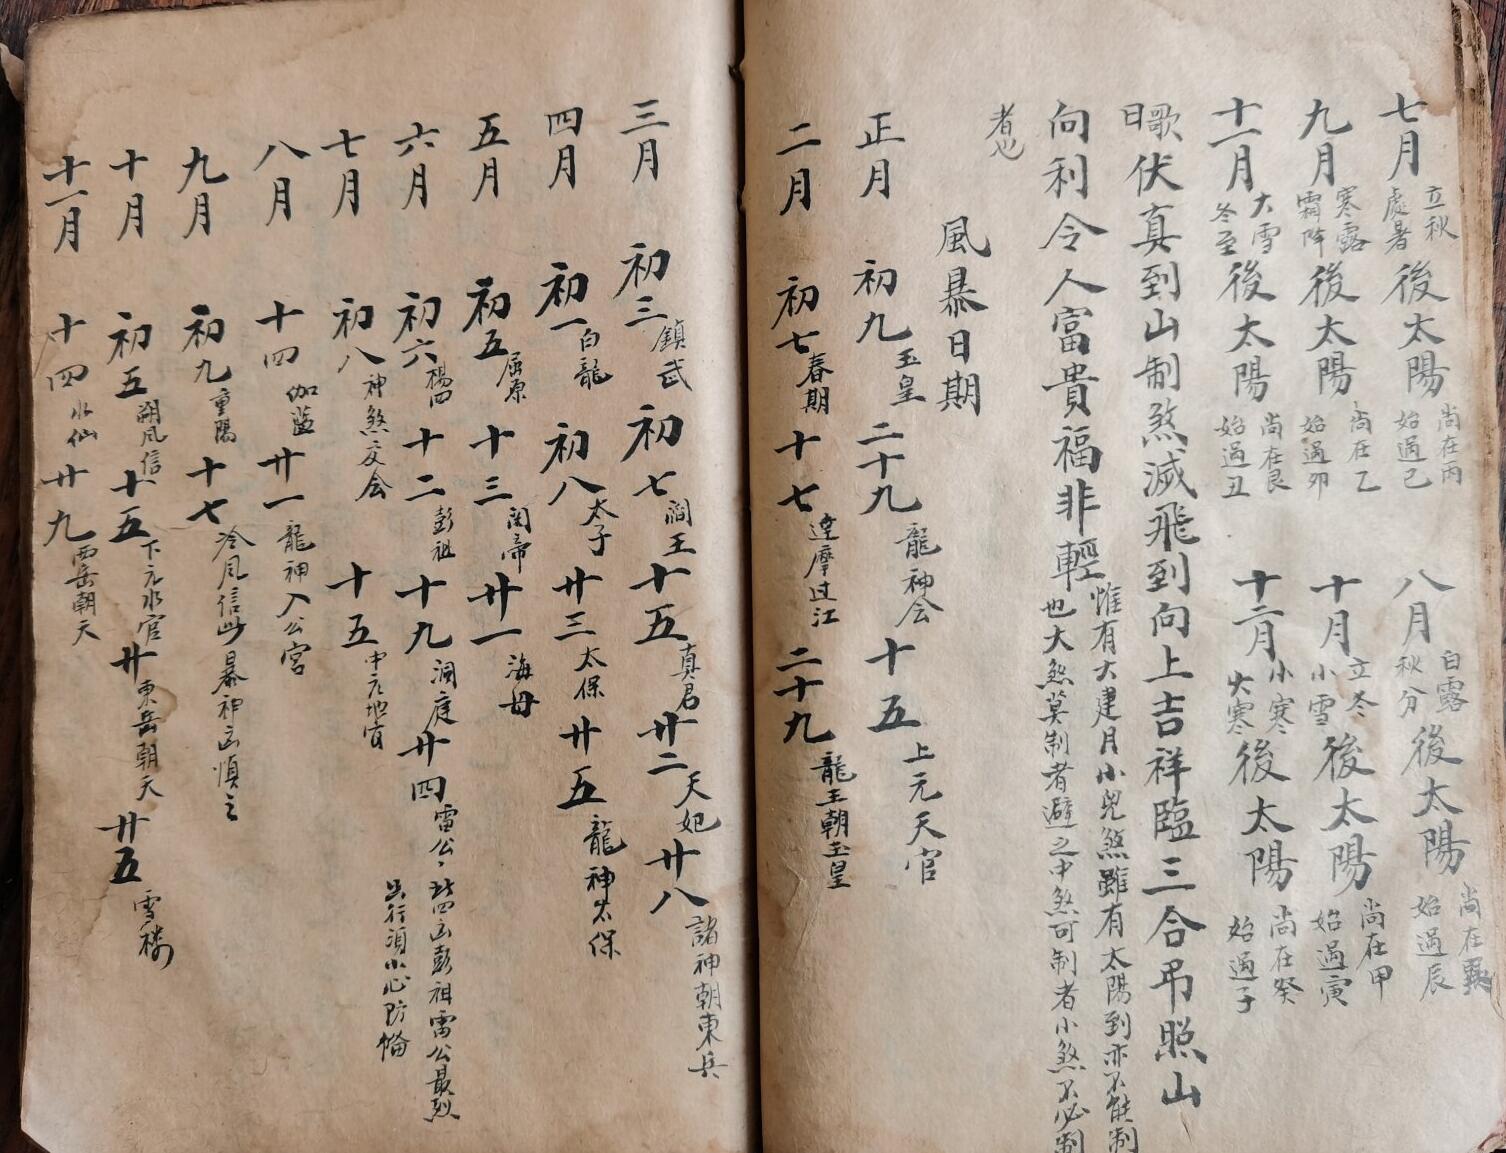 七月立秋處暑後太陽尚在丙始過巳 八月白露秋分後太陽尚在巽始過辰
九月寒露霜降後太陽尚在乙始過卯 十月立冬小雪後太陽尚在甲始過寅
十一月大雪冬至後太陽尚在艮始過丑 十二月小寒大寒後太陽尚在癸始過子
歌曰伏真到山制煞滅飛到向上吉祥臨三合吊照山
向利令人富貴福非輕惟有大建月小兒煞雖有太陽到亦不能制也大煞莫制者避之中煞可制者小煞不必制
者也
風暴日期
正月 初九玉皇 二十九龍神会 十五上元天官
二月 初七春期 十七達摩过江 二十九龍王朝玉皇
三月 初三鎮武 初七閻王 十五真君 廿二天妃 廿八諸神朝東兵
四月 初一白龍 初八太子 廿三太保 廿五龍神太保
五月 初五屈原 十三関帝 廿一海母
六月 初六楊四 十二彭祖 十九洞庭 廿四雷公，此四凶彭祖雷公最烈出行須小心防偹
七月 初八神煞交会 十五中元地官
八月 十四伽藍 廿一龍神入公宮
九月 初九重陽 十七冷風信此暴神凶慎之
十月 初五朔風信 十五下元水官 廿東岳朝天 廿五雪楼
十一月 十四水仙 廿九西岳朝天